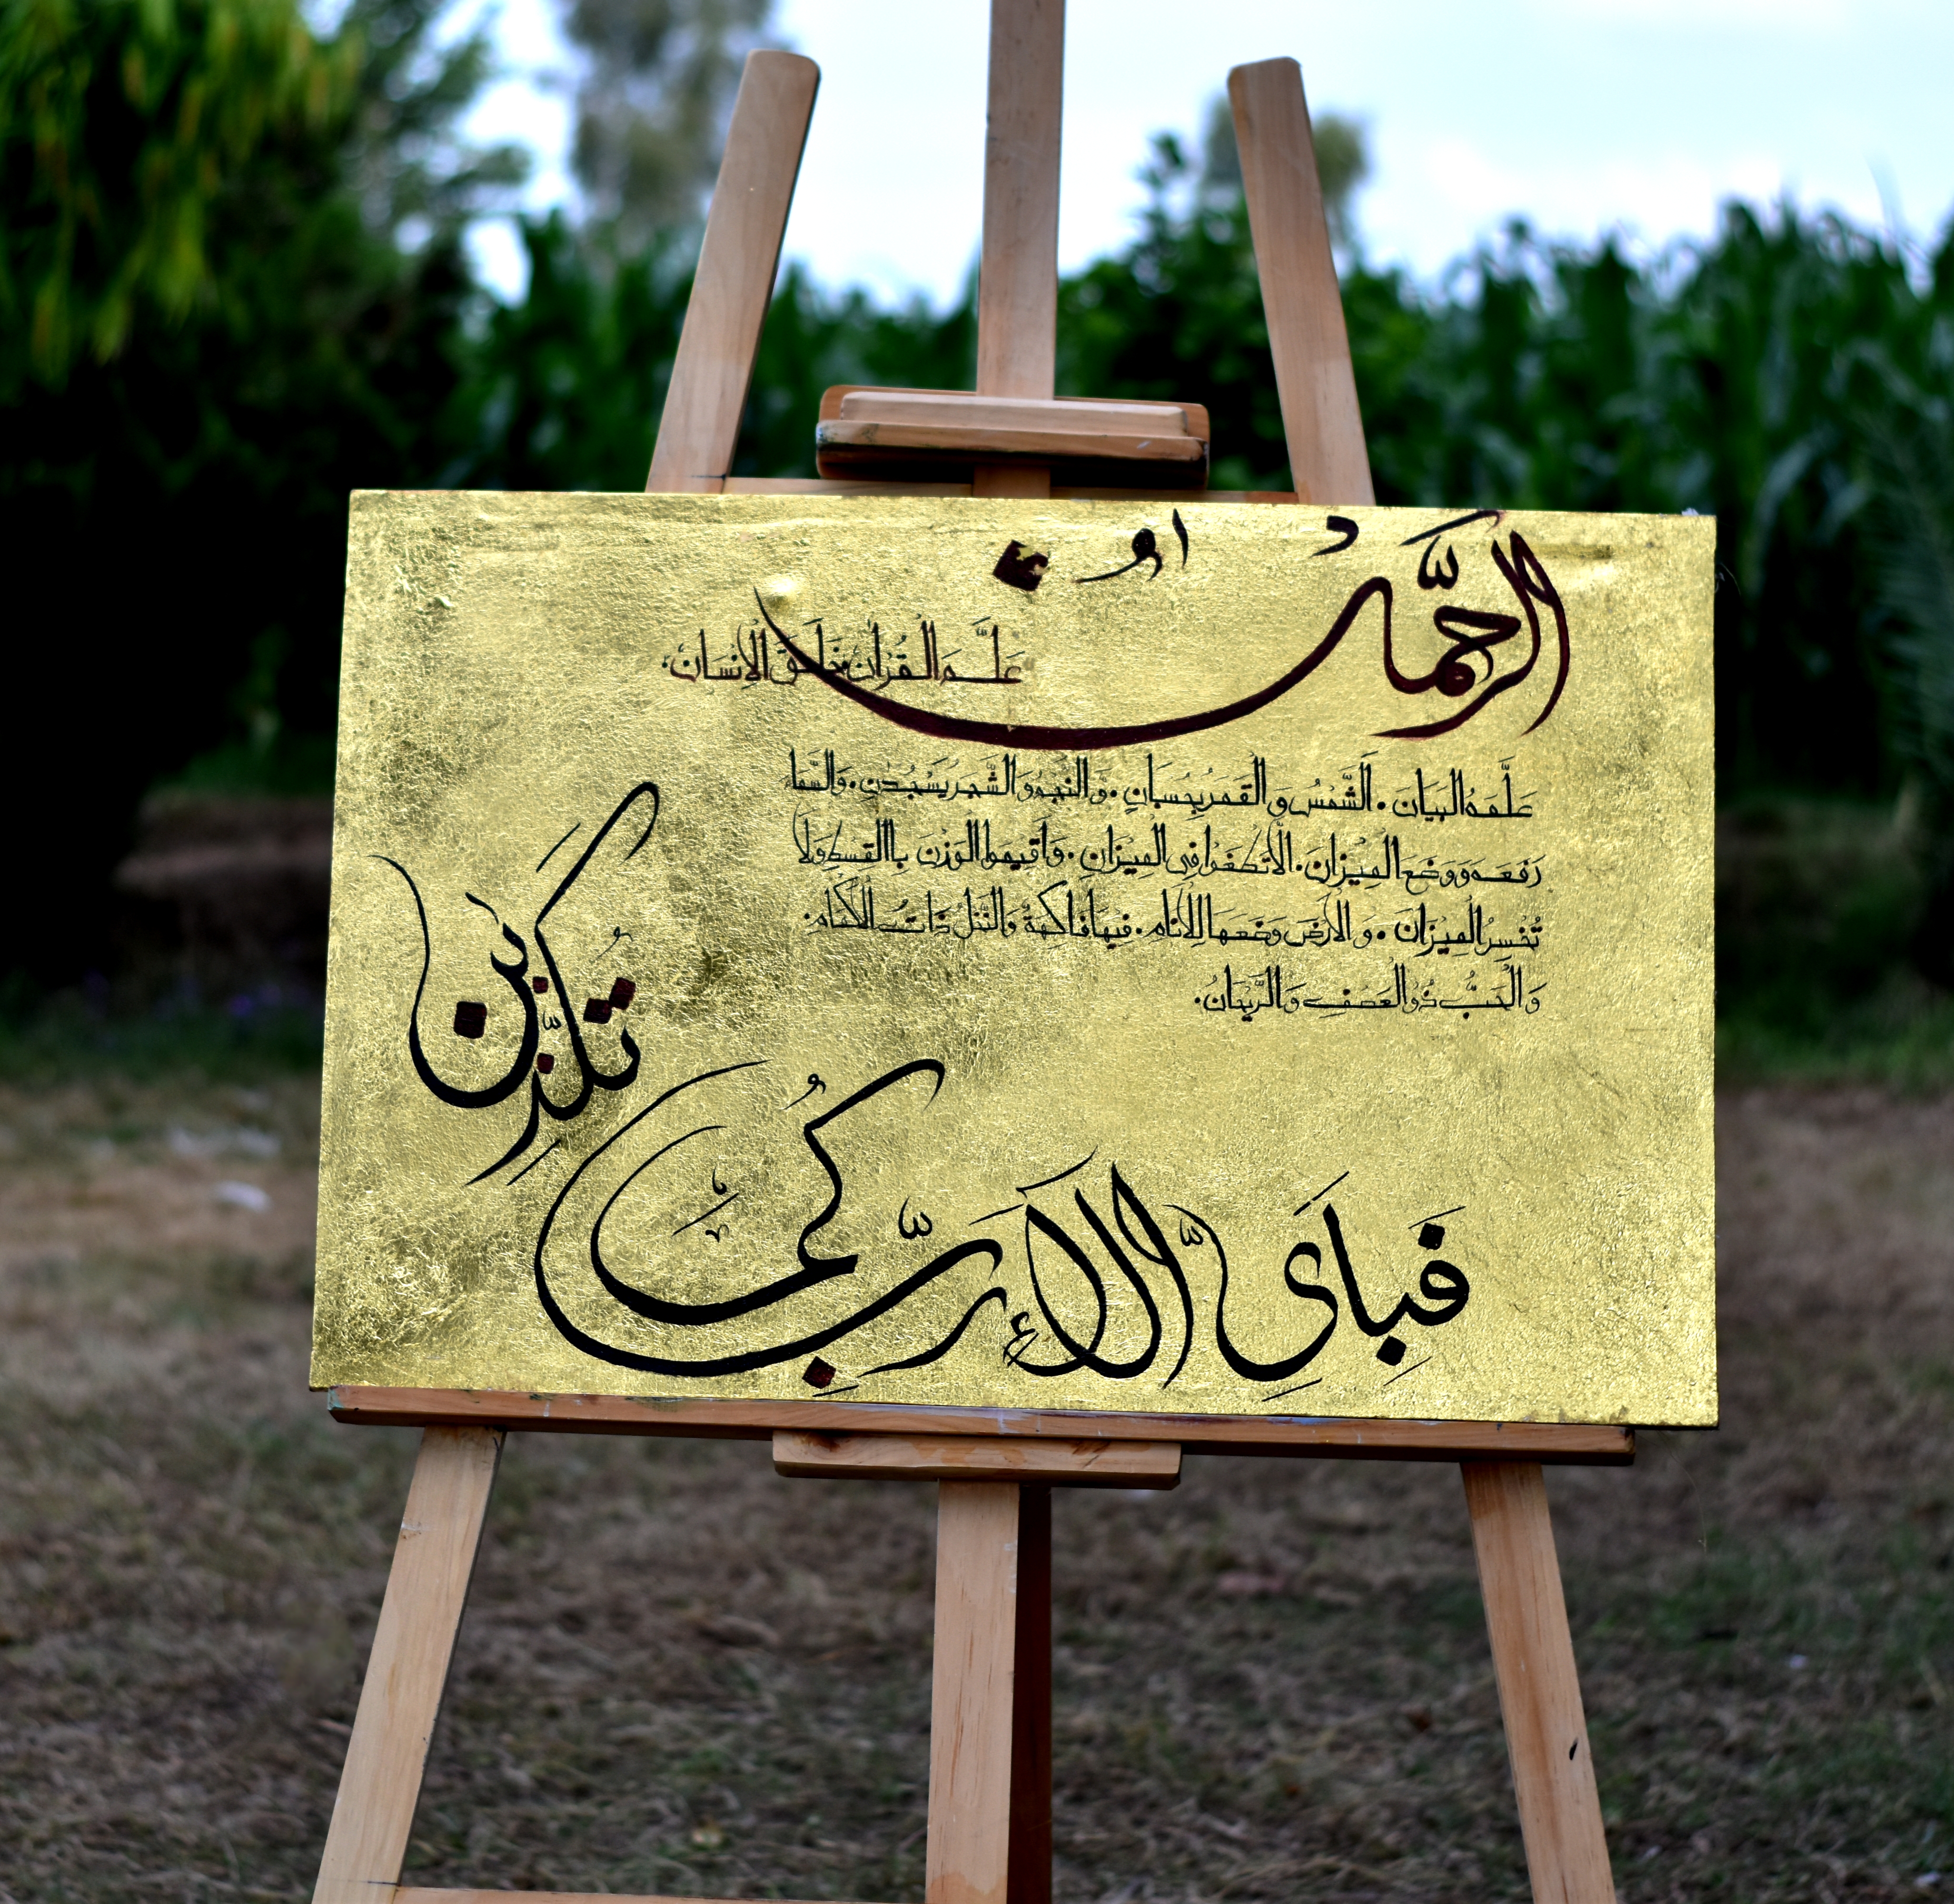 الرحمٰنُ
عَلَّمَ القُرْاٰنَ خَلَقَ الْاِنْسَانَ۰
عَلَّمَهُ البَيَانَ۰ اَلشَّمْسُ وَ القَمَرُ بِحُسْبَانٍ۰ وَّالنَّجْمُ وَ الشَّجَرُ يَسْجُدٰنِ۰ وَالسَّمَاءَ
رَفَعَهَ وَوَضَعَ الْمِيْزَانَ۰ الَّا تَطْغَوْا فِى الْمِيْزَانِ۰ وَاَقِيْمُوا الوَزْنَ باالْقِسْطِ وَلَا
تُخْسِرُ الْمِيْزَانَ۰ وَ الْاَرْضَ وَضَعَهَا لِلْاَنَامِ۰ فِيهَا فَاكِهَةٌ وَالنَّخْلُ ذَاتُ الْاَكْمَامِ۰
وَ الْحَبُّ ذُو العَصْفِ وَ الرَّيْحَانُ۰
فَبِاَىِّ اٰلَاءِ رَبِّكُمَا
تُكَذِّبٰنِ